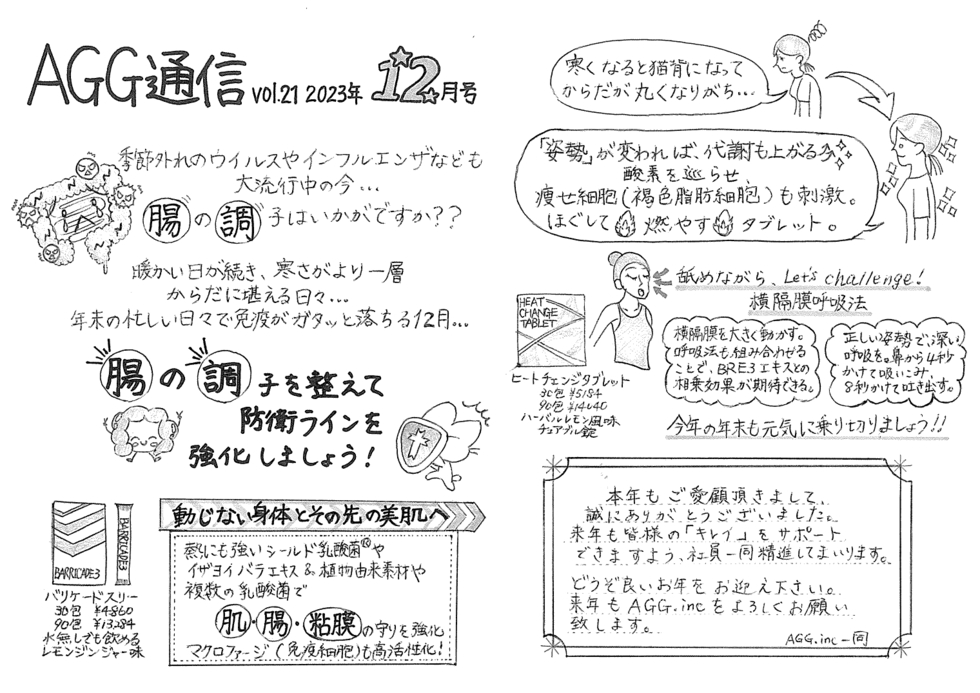 AGG通信 vol.21 2023年 12月号
季節外れのウイルスやインフルエンザなども
大流行中の今…
腸の調子はいかがですか??
暖かい日が続き、寒さがより一層
からだに堪える日々…
年末の忙しい日々で免疫がガタッと落ちる12月…
腸の調子を整えて
防衛ラインを
強化しましょう!
BARRICADE3
BARRICADE3
バリケードスリー
30包 ¥4,860
90包 ¥13,284
水無しでも飲める
レモンジンジャー味
動じない身体とその先の美肌へ
熱にも強いシールド乳酸菌®や
イザヨイバラエキス&植物由来素材や
複数の乳酸菌で
肌・腸・粘膜の守りを強化
マクロファージ(免疫細胞)も高活性化!
寒くなると猫背になって
からだが丸くなりがち…
「姿勢」が変われば、代謝も上がる
酸素を巡らせ、
痩せ細胞(褐色脂肪細胞)も刺激。
ほぐして燃やすタブレット。
舐めながら、Let's challenge!
横隔膜呼吸法
HEAT
CHANGE
TABLET
ヒートチェンジタブレット
30包 ¥5184
90包 ¥14040
ハーバルレモン風味
チュアブル錠
横隔膜を大きく動かす。
呼吸法も組み合わせる
ことで、BRE3エキスとの
相乗効果が期待できる。
正しい姿勢で深い
呼吸を。鼻から4秒
かけて吸いこみ、
8秒かけて吐き出す。
今年の年末も元気に乗り切りましょう!!
本年もご愛顧頂きまして、
誠にありがとうございました。
来年も皆様の「キレイ」をサポート
できますよう、社員一同精進してまいります。
どうぞ良いお年をお迎え下さい。
来年もAGG.incをよろしくお願い
致します。
AGG.inc一同